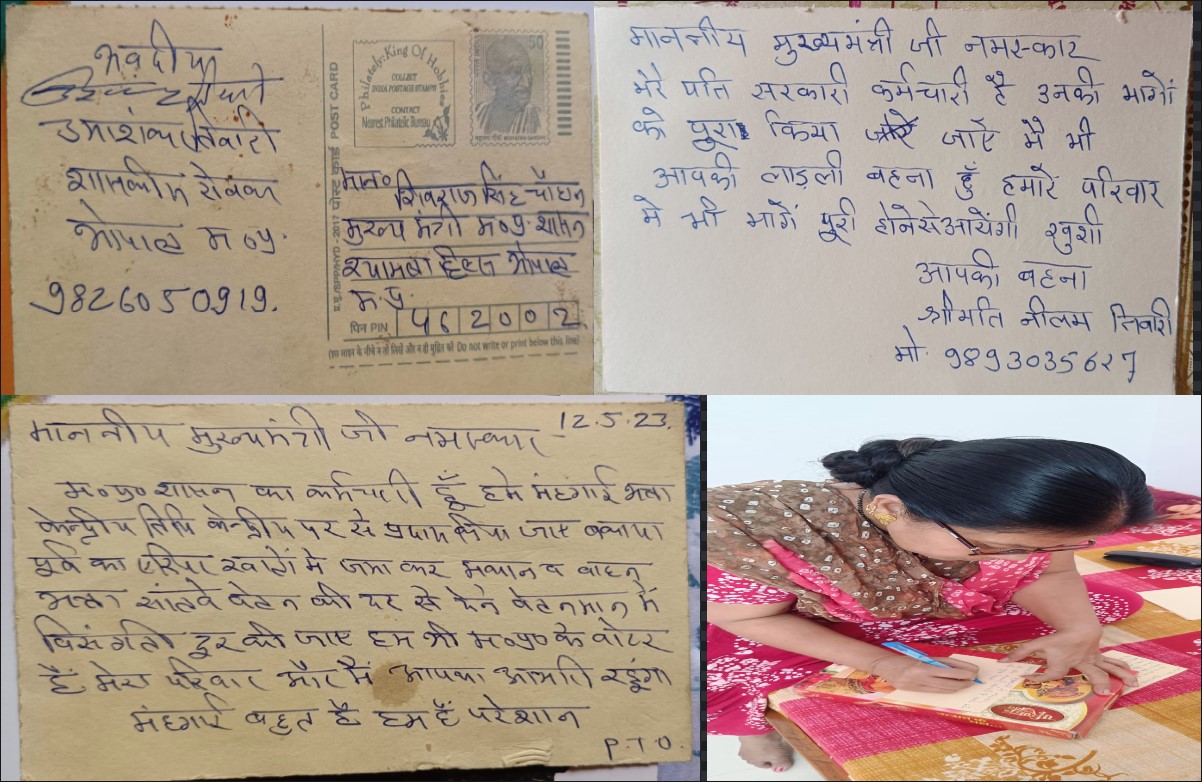 भवदीय
उमाशंकर तिवारी
शासकीय सेवक
भोपाल म०प्र.
9826050919.
Philately: King Of Hobbies
COLLECT
INDIA POSTAGE STAMPS
CONTACT
Nearest Philatelic Bureau
50
पोस्ट कार्ड POST CARD
मान०
शिवराज सिंह चौहान
मुख्य मंत्री म०प्र. शासन
श्यामला हिल्स भोपाल
म.प्र.
पिन PIN 462002
(इस लाइन के नीचे न तो लिखें और न ही मुद्रित करें Do not write or print below this line)
माननीय मुख्यमंत्री जी नमस्कार
मेरे पति सरकारी कर्मचारी है उनकी मागों
को पूरा किया जाऐ मै भी
आपकी लाड़ली बहना हूँ हमारे परिवार
मे भी मागें पूरी होनेसे आयेंगी खुशी
आपकी बहना
श्रीमति नीलम तिवारी
मो. 9893035627
12.5.23.
माननीय मुख्यमंत्री जी नमस्कार
म०प्र० शासन का कर्मचारी हूँ हमे मंहगाई भत्ता
केन्द्रीय तिथि केन्द्रीय दर से प्रदाय किया जाए बकाया
पूर्व का एरियर खातों मे जमा कर मकान व वाहन
भत्ता सांतवे वेतन की दर से देने वेतनमान में
विसंगती दूर की जाए हम भी म०प्र० के वोटर
हैं मेरा परिवार और मैं आपका आभारी रहूंगा
मंहगाई बहुत है हम हैं परेशान
P.T.O.